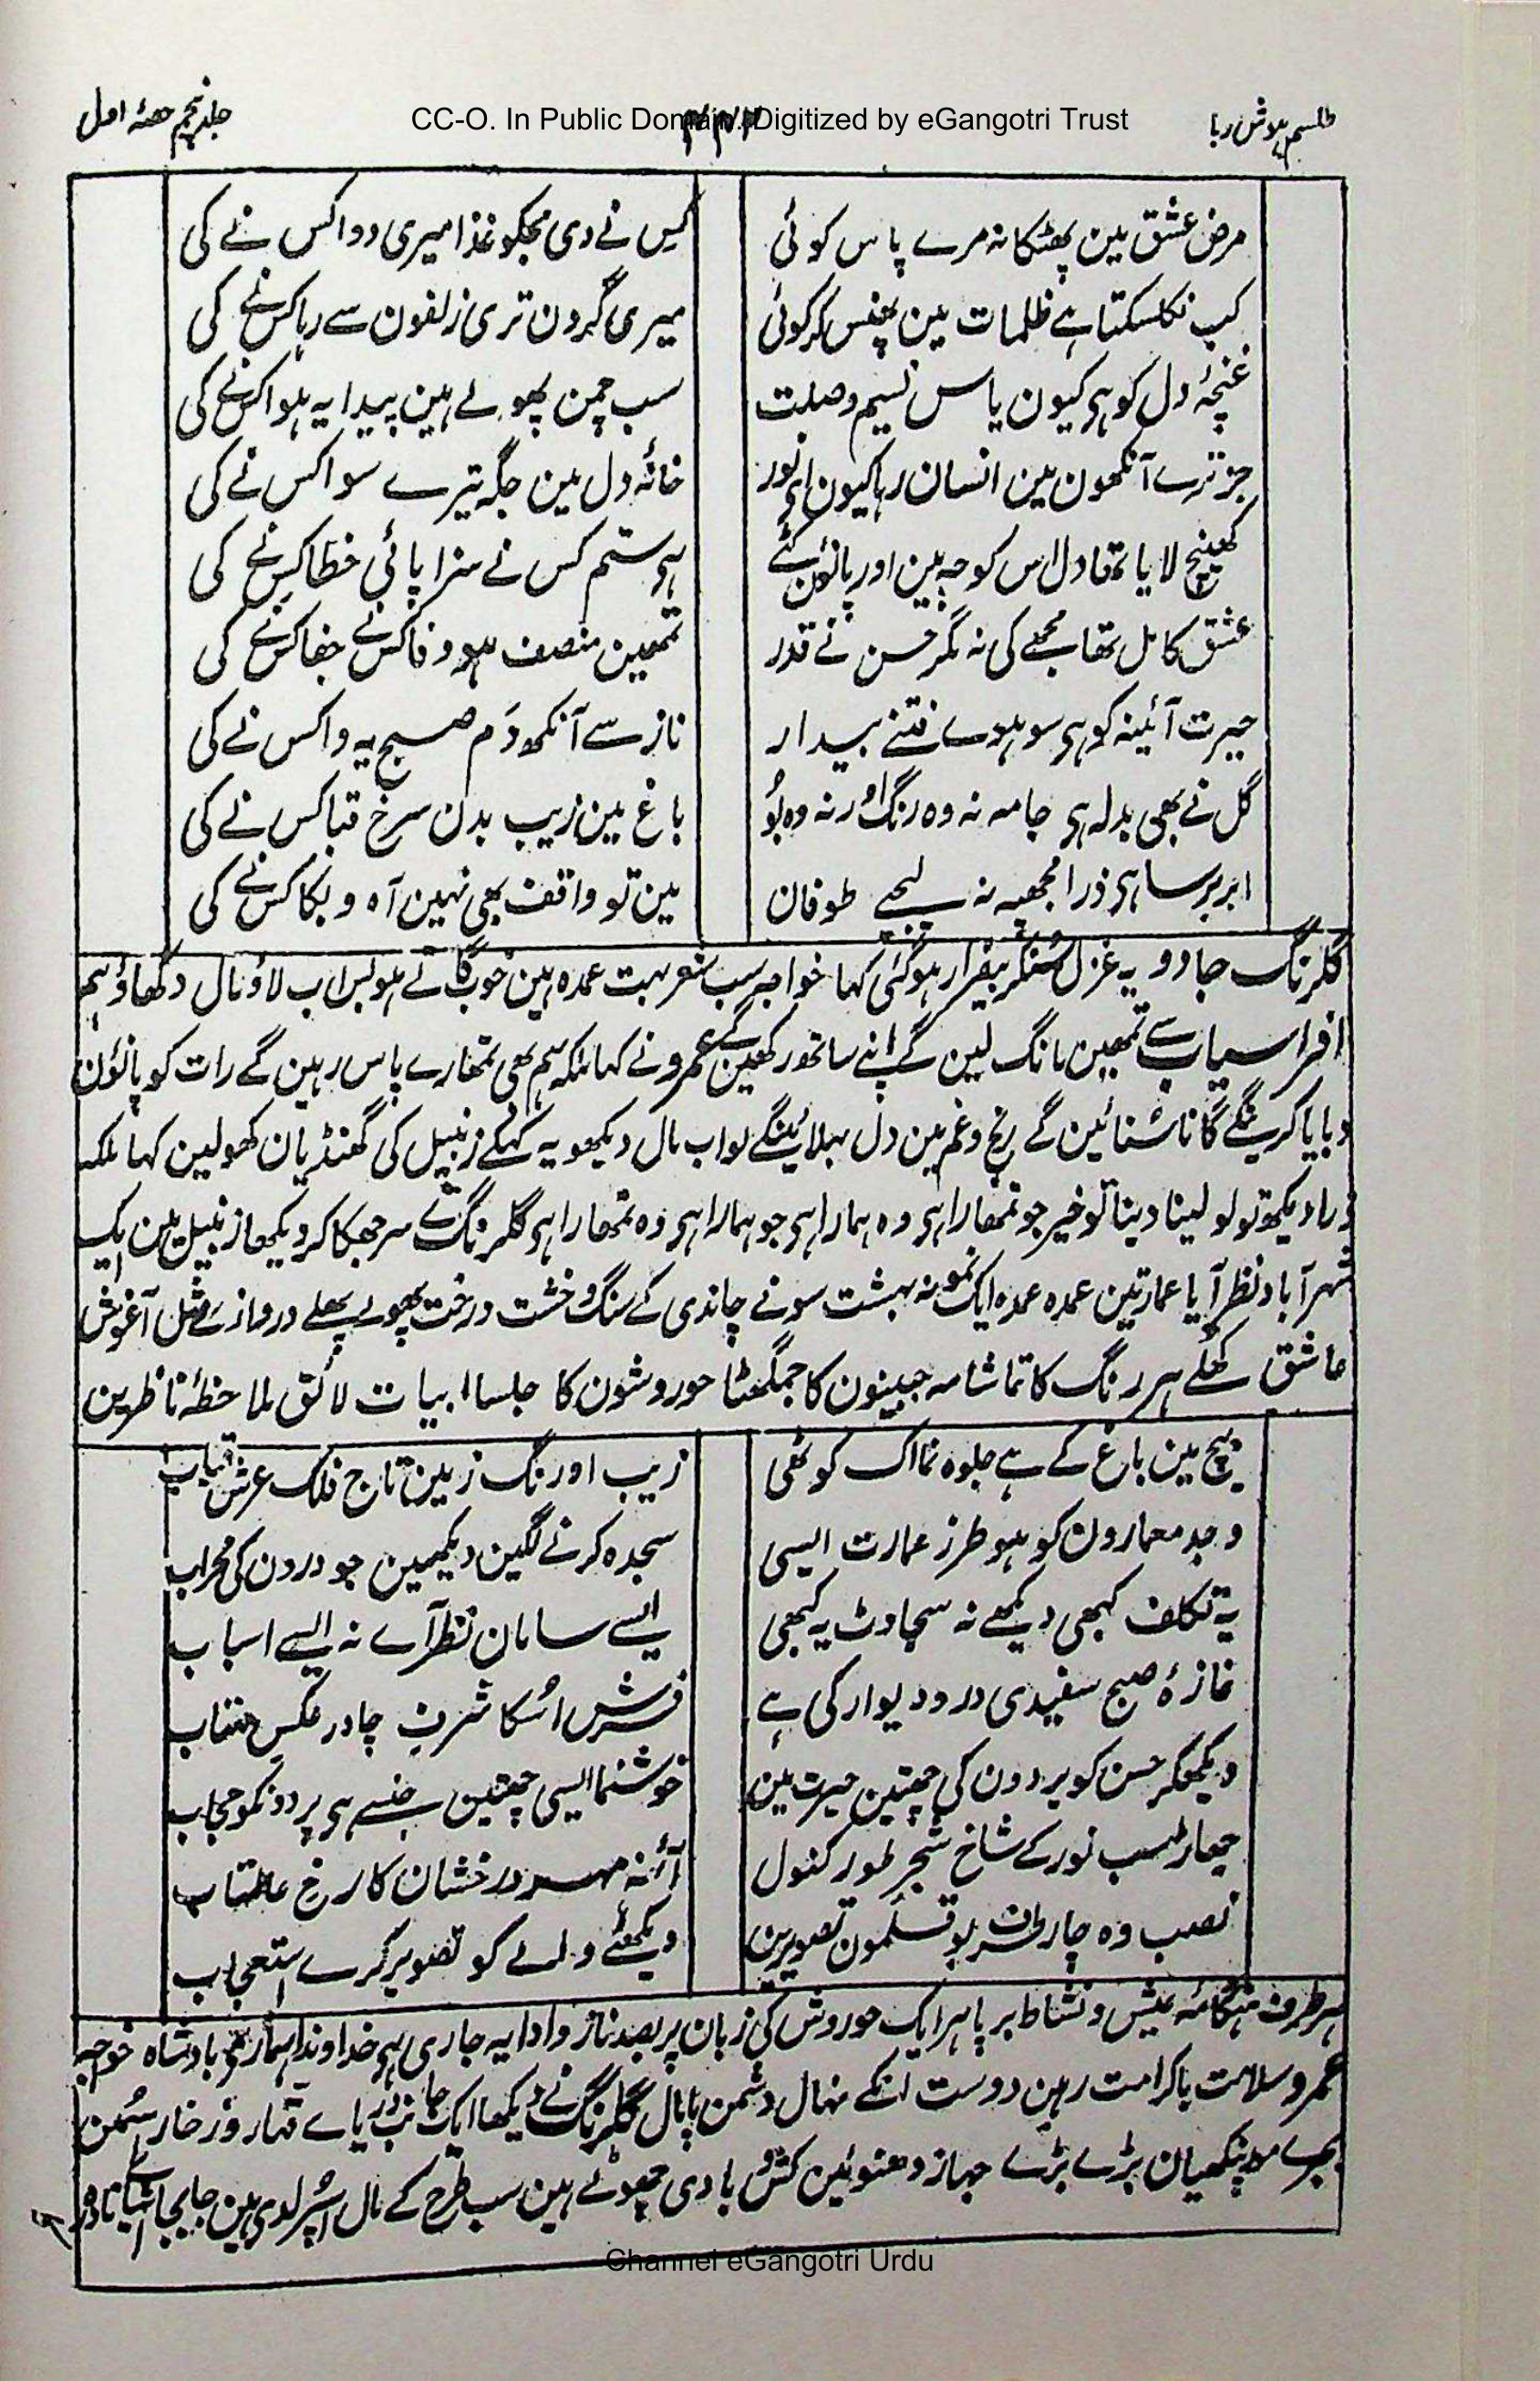 طلسم ہوش ربا
CC-O. In Public Domain. Digitized by eGangotri Trust
جلد پنجم حصۂ اول
مرض عشق مین پھٹکا نہ مرے پاس کوئی کس نے دی مجکو غذا میری دوا کس نے کی
کب نکلسکتا ہے ظلمات مین پھنس کر کوئی میری گردن تری زلفون سے رہا کس نے کی
غنچۂ دل کو ہی کیون یاس نسیم وصلت سب چمن پھولے ہین پیدا یہ ہوا کس نے کی
جز ترے آنکھون مین انسان رہا کیون ای نور خانۂ دل مین جگہ تیرے سوا کس نے کی
کھینچ لایا تھا دل اس کوچہ مین اور پانؤن کٹے ہی ستم کس نے سزا پائی خطا کس نے کی
عشق کامل تھا مجھے کی نہ مگر حسن نے قدر تمھین منصف ہو وفا کس نے جفا کس نے کی
حیرت آئینہ کو ہی سو ہوے فتنے بیدار ناز سے آنکھ دَم صبح یہ وا کس نے کی
گل نے بھی بدلہ ہی جامہ نہ وہ رنگ اور نہ وہ بُو باغ مین زیب بدن سرخ قبا کس نے کی
ابر برسا ہی ذرا مجھپہ نہ لیجے طوفان مین تو واقف بھی نہین آہ و بکا کس نے کی
گلرنگ جادو یہ غزل سُنکر بیقرار ہوگئی کہا خواجہ سب شعر بہت عمدہ ہین خوب گاتے ہو بس اب لاؤ مال دکھاؤ ہم
افراسیاب سے تمھین مانگ لین گے اپنے ساتھ رکھین گے عمرو نے کہا ملکہ ہم بھی تمھارے پاس رہین گے رات کو پانؤن
دبایا کرینگے گانا سُنائین گے رنج و غم مین دل بہلائینگے لو اب مال دیکھو یہ کہکے زنبیل کی گھنڈیان کھولین کہا ملکہ
ذرا دیکھ تو لو لینا دینا تو خیر جو تمھارا ہی وہ ہمارا ہی جو ہمارا ہی وہ تمھارا ہی گلرنگ نے سر جھکا کر دیکھا زنبیل مین ایک
شہر آباد نظر آیا عمارتین عمدہ عمدہ ایک نمونہ بہشت سونے چاندی کے سنگ و خشت درخت پھولے پھلے دروازے مثل آغوش
عاشق کھلے ہر رنگ کا تماشا مہ جبینون کا جمگھٹا حوروشون کا جلسا ابیات لائق ملاحظۂ ناظرین
بیچ مین باغ کے ہے جلوہ نما اک کوٹھی زیب اورنگ زمین تاج فلک عرش قباب
وجد معمارون کو ہو طرز عمارت ایسی سجدہ کرنے لگین دیکھین جو درون کی محراب
یہ تکلف کبھی دیکھے نہ سجاوٹ یہ کبھی ایسے سامان نظر آے نہ ایسے اسباب
غازۂ صبح سفیدی در و دیوار کی ہے فرش اُسکا شرف چادر عکس مہتاب
دیکھکر حسن کو پردون کی چھتین حیرت مین خوشنما ایسی چھتین جنسے ہی پردونکو حجاب
جھاڑ سب نور کے شاخ شجر طور کنول آئنہ مہر درخشان کا رخ عالمتاب
نصب وہ چار طرف بوقلمون تصویرین دیکھنے والے کو تصویر کرے استعجاب
ہر طرف ہنگامۂ عیش و نشاط برپا ہر ایک حوروش کی زبان پر بصد ناز و ادا یہ جاری ہی خداوندا ہمارے بادشاہ خواجہ
عمرو سلامت باکرامت رہین دوست انکے نہال دشمن پامال گلرنگ نے دیکھا ایک جانب دریاے قہار و زخار
بجرے مورپنکھیان بڑے بڑے جہاز دھنوئین کش و بادی چھوٹے ہین سب طرح کے مال اُسپر لدی ہین جابجا اشیاے نادر
Channel eGangotri Urdu